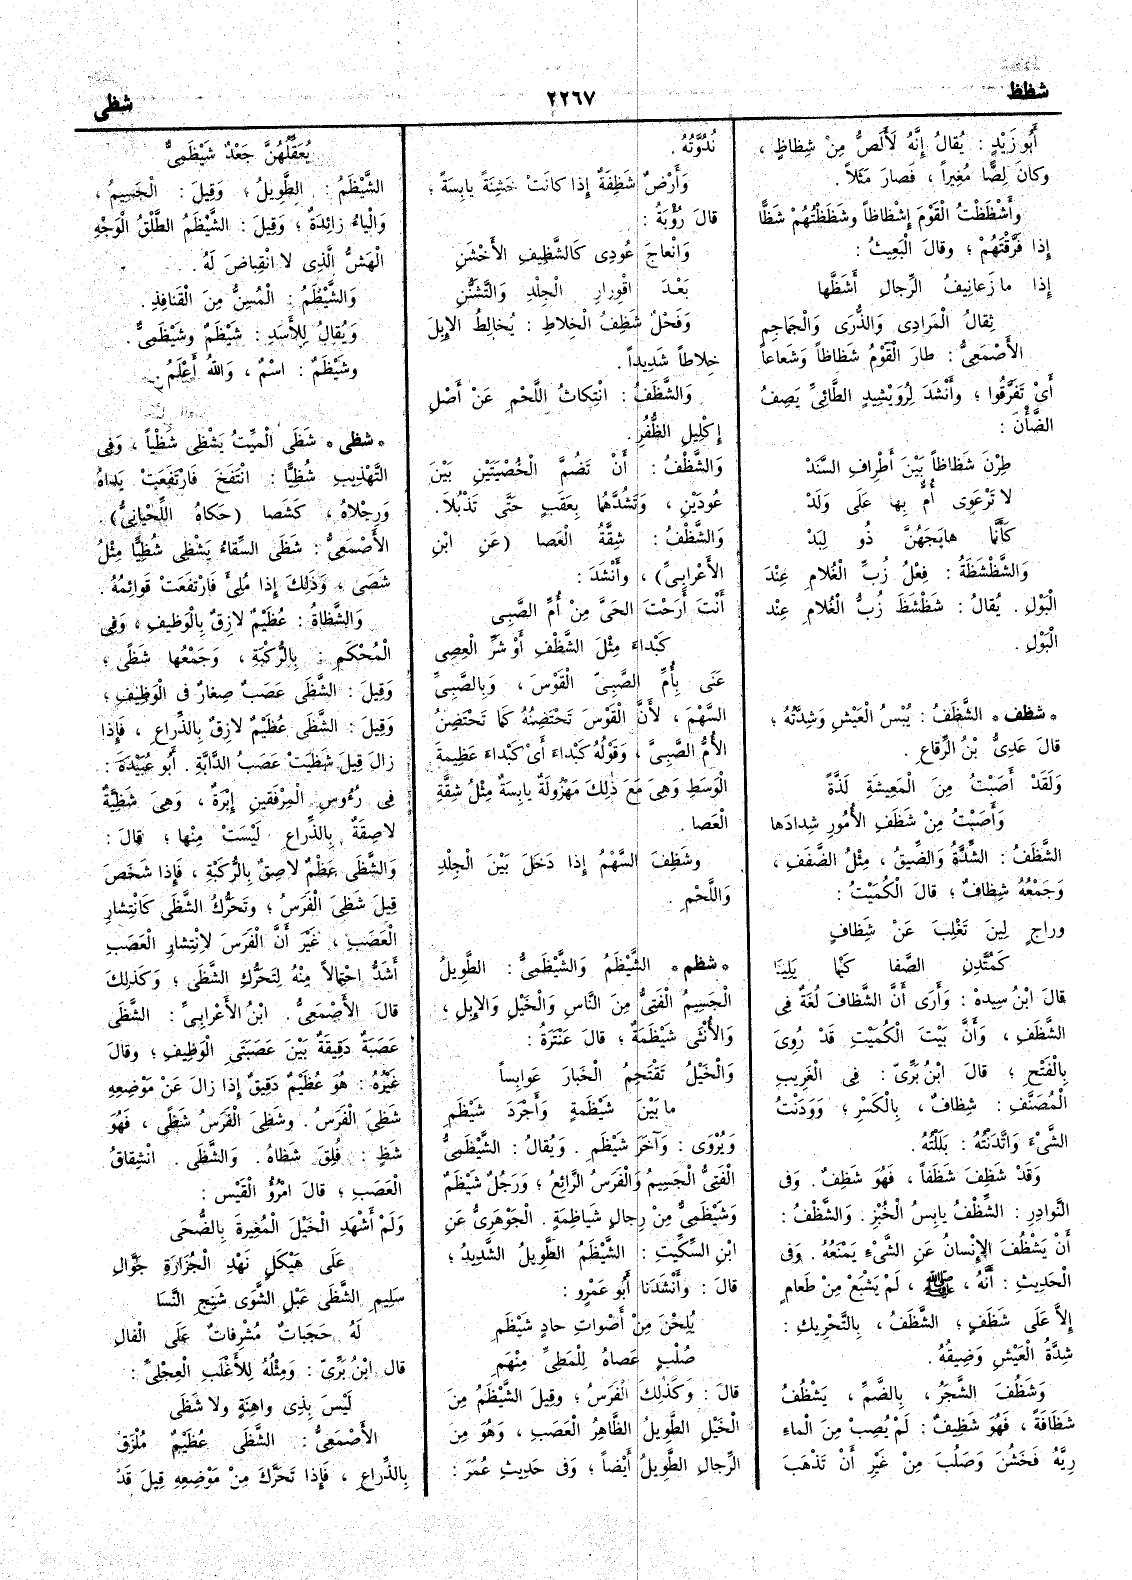 شظظ
٢٢٦٧
شظى
أَبُو زَيْدٍ : يُقالُ إِنَّهُ لَأَلَصُّ مِنْ شِظاظٍ ،
وكانَ لِصًّا مُغِيراً ، فصارَ مَثَلاً .
وأَشْظَظْتُ الْقَوْمَ إِشْظاظاً وشَظَظْتُهُمْ شَظًّا
إِذا فَرَّقْتَهُمْ ؛ وقالَ الْبَعِيثُ :
إِذا ما زَعانِيفُ الرِّجالِ أَشَظَّها
ثِقالُ الْمَرادِى وَالذُّرَى وَالْجَماجِمِ
الأَصْمَعِىُّ : طارَ الْقَوْمُ شَظاظاً وَشَعاعاً
أَىْ تَفَرَّقُوا ؛ وأَنْشَدَ لِرُوَيْشِدٍ الطَّائِىِّ يَصِفُ
الضَّأْنَ :
طِرْنَ شَظاظاً بَيْنَ أَطْرافِ السَّنَدْ
لا تَرْعَوِى أُمٌّ بِها عَلَى وَلَدْ
كَأَنَّما هايَجَهُنَّ ذُو لِبَدْ
وَالشَّظْشَظَةُ : فِعْلُ زُبِّ الْغُلامِ عِنْدَ
الْبَوْلِ . يُقالُ : شَظْشَظَ زُبُّ الْغُلامِ عِنْدَ
الْبَوْلِ .
* شظف * الشَّظَفُ : يُبْسُ الْعَيْشِ وَشِدَّتُهُ ؛
قالَ عَدِىُّ بْنُ الرِّقاعِ
وَلَقَدْ أَصَبْتُ مِنَ الْمَعِيشَةِ لَذَّةً
وَأَصَبْتُ مِنْ شَظَفِ الأُمُورِ شِدادَها
الشَّظَفُ : الشِّدَّةُ وَالضِّيقُ ، مِثْلُ الضَّفَفِ ،
وَجَمْعُهُ شِظافٌ ؛ قالَ الْكُمَيْتُ :
وراجٍ لِينَ تَغْلِبَ عَنْ شِظافٍ
كَمُتَّدِنِ الصَّفا كَيْما يَلِينَا
قالَ ابْنُ سِيدَهْ : وَأَرَى أَنَّ الشَّظافَ لُغَةٌ فِى
الشَّظَفِ ، وَأَنَّ بَيْتَ الْكُمَيْتِ قَدْ رُوِىَ
بِالْفَتْحِ ؛ قالَ ابْنُ بَرِّىّ : فِى الْغَرِيبِ
الْمُصَنَّفِ : شِظافٌ ، بِالْكَسْرِ ؛ وَوَدَنْتُ
الشَّىْءَ وَاتَّدَنْتُهُ : بَلَلْتُهُ .
وَقَدْ شَظِفَ شَظَفاً ، فَهُوَ شَظِفٌ . وَفى
النَّوادِرِ : الشَّظْفُ يابِسُ الْخُبْزِ . وَالشَّظْفُ :
أَنْ يَشْظُفَ الإِنْسانُ عَنِ الشَّىْءِ يَمْنَعُهُ . وَفى
الْحَدِيثِ : أَنَّهُ ، ﷺ ، لَمْ يَشْبَعْ مِنْ طَعامٍ
إِلاَّ عَلَى شَظَفٍ ؛ الشَّظَفُ ، بِالتَّحْرِيكِ :
شِدَّةُ الْعَيْشِ وَضِيقُهُ .
وَشَظُفَ الشَّجَرُ ، بِالضَّمِّ ، يَشْظُفُ
شَظافَةً ، فَهُوَ شَظِيفٌ : لَمْ يُصِبْ مِنَ الْماءِ
رِيَّهُ فَخَشُنَ وَصَلُبَ مِنْ غَيْرِ أَنْ تَذْهَبَ
نُدُوَّتُهُ .
وَأَرْضٌ شَظِفَةٌ إِذا كانَتْ خَشِنَةً يابِسَةً ؛
قالَ رُؤْبَةُ :
وَانْعاجَ عُودِى كَالشَّظِيفِ الأَخْشَنِ
بَعْدَ اقْوِرارِ الْجِلْدِ وَالتَّشَنُّنِ
وَفَحْلٌ شَظِفُ الْخِلاطِ : يُخالِطُ الإِبِلَ
خِلاطاً شَدِيداً .
وَالشَّظَفُ : انْتِكاثُ اللَّحْمِ عَنْ أَصْلِ
إِكْلِيلِ الظُّفُرِ .
وَالشَّظْفُ : أَنْ تَضُمَّ الْخُصْيَتَيْنِ بَيْنَ
عُودَيْنِ ، وَتَشُدَّهُما بِعَقَبٍ حَتَّى تَذْبُلا .
وَالشَّظْفُ : شِقَّةُ الْعَصا (عَنِ ابْنِ
الأَعْرابِىِّ) ، وأَنْشَدَ :
أَنْتَ أَرَحْتَ الحَىَّ مِنْ أُمِّ الصَّبِى
كَبْداءَ مِثْلَ الشَّظْفِ أَوْ شَرِّ الْعِصِى
عَنَى بِأُمِّ الصَّبِىّ الْقَوْسَ ، وَبِالصَّبِىِّ
السَّهْمَ ، لأَنَّ الْقَوْسَ تَحْتَضِنُهُ كَما تَحْتَضِنُ
الأُمُّ الصَّبِىَّ ، وَقَوْلُهُ كَبْداءَ أَىْ كَبْداءَ عَظِيمَةَ
الْوَسَطِ وَهِىَ مَعَ ذٰلِكَ مَهْزُولَةٌ يابِسَةٌ مِثْلُ شِقَّةِ
الْعَصا .
وشَظِفَ السَّهْمُ إِذا دَخَلَ بَيْنَ الْجِلْدِ
وَاللَّحْمِ .
* شظم * الشَّيْظَمُ وَالشَّيْظَمِىُّ : الطَّوِيلُ
الْجَسِيمُ الْفَتِىُّ مِنَ النَّاسِ وَالْخَيْلِ وَالإِبِلِ ،
وَالأُنْثَى شَيْظَمَةٌ ؛ قالَ عَنْتَرَةُ :
وَالْخَيْلُ تَقْتَحِمُ الْخَبارَ عَوابِساً
ما بَيْنَ شَيْظَمَةٍ وَأَجْرَدَ شَيْظَمِ
وَيُرْوَى : وَآخَرَ شَيْظَمِ . وَيُقالُ : الشَّيْظَمِىُّ
الْفَتِىُّ الْجَسِيمُ وَالْفَرَسُ الرَّائِعُ ؛ وَرَجُلٌ شَيْظَمٌ
وَشَيْظَمِىٌّ مِنْ رِجالٍ شَياظِمَةٍ . الْجَوْهَرِىُّ عَنِ
ابْنِ السِّكِّيتِ : الشَّيْظَمُ الطَّوِيلُ الشَّدِيدُ ؛
قالَ : وَأَنْشَدَنا أَبُو عَمْرٍو :
يُلِحْنَ مِنْ أَصْواتِ حادٍ شَيْظَمِ
صُلْبٍ عَصاهُ لِلْمَطِىِّ مِنْهَمِ
قالَ : وَكَذٰلِكَ الْفَرَسُ ؛ وقِيلَ الشَّيْظَمُ مِنَ
الْخَيْلِ الطَّوِيلُ الظَّاهِرُ الْعَصَبِ ، وَهُوَ مِنَ
الرِّجالِ الطَّوِيلُ أَيْضاً ؛ وَفى حَدِيثِ عُمَرَ :
يُعَقِّلُهُنَّ جَعْدٌ شَيْظَمِىٌّ
الشَّيْظَمُ : الطَّوِيلُ ؛ وَقِيلَ : الْجَسِيمُ ،
وَالْياءُ زائِدَةٌ ؛ وَقِيلَ : الشَّيْظَمُ الطَّلْقُ الْوَجْهِ
الْهَشُّ الَّذِى لا انْقِباضَ لَهُ .
وَالشَّيْظَمُ : الْمُسِنُّ مِنَ الْقَنافِذِ .
وَيُقالُ لِلأَسَدِ : شَيْظَمٌ وشَيْظَمِىٌّ .
وشَيْظَمٌ : اسْمٌ ، وَاللهُ أَعْلَمُ .
* شظى * شَظَى الْمَيِّتُ يَشْظِى شَظْياً ، وَفِى
التَّهْذِيبِ شُظِيًّا : انْتَفَخَ فَارْتَفَعَتْ يَداهُ
وَرِجْلاهُ ، كَشَصا (حَكاهُ اللِّحْيانِىُّ) .
الأَصْمَعِىُّ : شَظَى السِّقاءُ يَشْظِى شُظِيًّا مِثْلُ
شَصَى ، وَذٰلِكَ إِذا مُلِئَ فَارْتَفَعَتْ قَوائِمُهُ .
وَالشَّظاةُ : عُظَيْمٌ لازِقٌ بِالْوَظِيفِ ، وَفِى
الْمُحْكَمِ : بِالرُّكْبَةِ ، وَجَمْعُها شَظًى ؛
وَقِيلَ : الشَّظَى عَصَبٌ صِغارٌ فِى الْوَظِيفِ ؛
وَقِيلَ : الشَّظَى عُظَيْمٌ لازِقٌ بِالذِّراعِ ، فَإِذا
زالَ قِيلَ شَظِيَتْ عَصَبُ الدَّابَّةِ . أَبُو عُبَيْدَةَ :
فِى رُءُوسِ الْمِرْفَقَيْنِ إِبْرَةٌ ، وَهِىَ شَظِيَّةٌ
لاصِقَةٌ بِالذِّراعِ لَيْسَتْ مِنْها ؛ قالَ :
وَالشَّظَى عَظْمٌ لاصِقٌ بِالرُّكْبَةِ ، فَإِذا شَخَصَ
قِيلَ شَظِىَ الْفَرَسُ ؛ وتَحَرُّكُ الشَّظَى كَانْتِشارِ
الْعَصَبِ ، غَيْرَ أَنَّ الْفَرَسَ لاِنْتِشارِ الْعَصَبِ
أَشَدُّ احْتِمالاً مِنْهُ لِتَحَرُّكِ الشَّظَى ؛ وَكَذلِكَ
قالَ الأَصْمَعِىُّ . ابْنُ الأَعْرابِىِّ : الشَّظَى
عَصَبَةٌ دَقِيقَةٌ بَيْنَ عَصَبَتَىِ الْوَظِيفِ ؛ وقالَ
غَيْرُهُ : هُوَ عُظَيْمٌ دَقِيقٌ إِذا زالَ عَنْ مَوْضِعِهِ
شَظِىَ الْفَرَسُ . وشَظِىَ الْفَرَسُ شَظًى ، فَهُوَ
شَظٍ : فُلِقَ شَظاهُ . وَالشَّظَى . انْشِقاقُ
الْعَصَبِ ؛ قالَ امْرُؤُ الْقَيْسِ :
وَلَمْ أَشْهَدِ الْخَيْلَ الْمُغِيرَةَ بِالضُّحَى
عَلَى هَيْكَلٍ نَهْدِ الْجُزارَةِ جَوَّالِ
سَلِيمِ الشَّظَى عَبْلِ الشَّوَى شَنِجِ النَّسَا
لَهُ حَجَباتٌ مُشْرِفاتٌ عَلَى الْفالِ
قالَ ابْنُ بَرِّىّ : وَمِثْلُهُ لِلأَغْلَبِ الْعِجْلِىِّ :
لَيْسَ بِذِى واهِنَةٍ ولا شَظَى
الأَصْمَعِىُّ : الشَّظَى عُظَيْمٌ مُلْزَقٌ
بِالذِّراعِ ، فَإِذا تَحَرَّكَ مِنْ مَوْضِعِهِ قِيلَ قَدْ